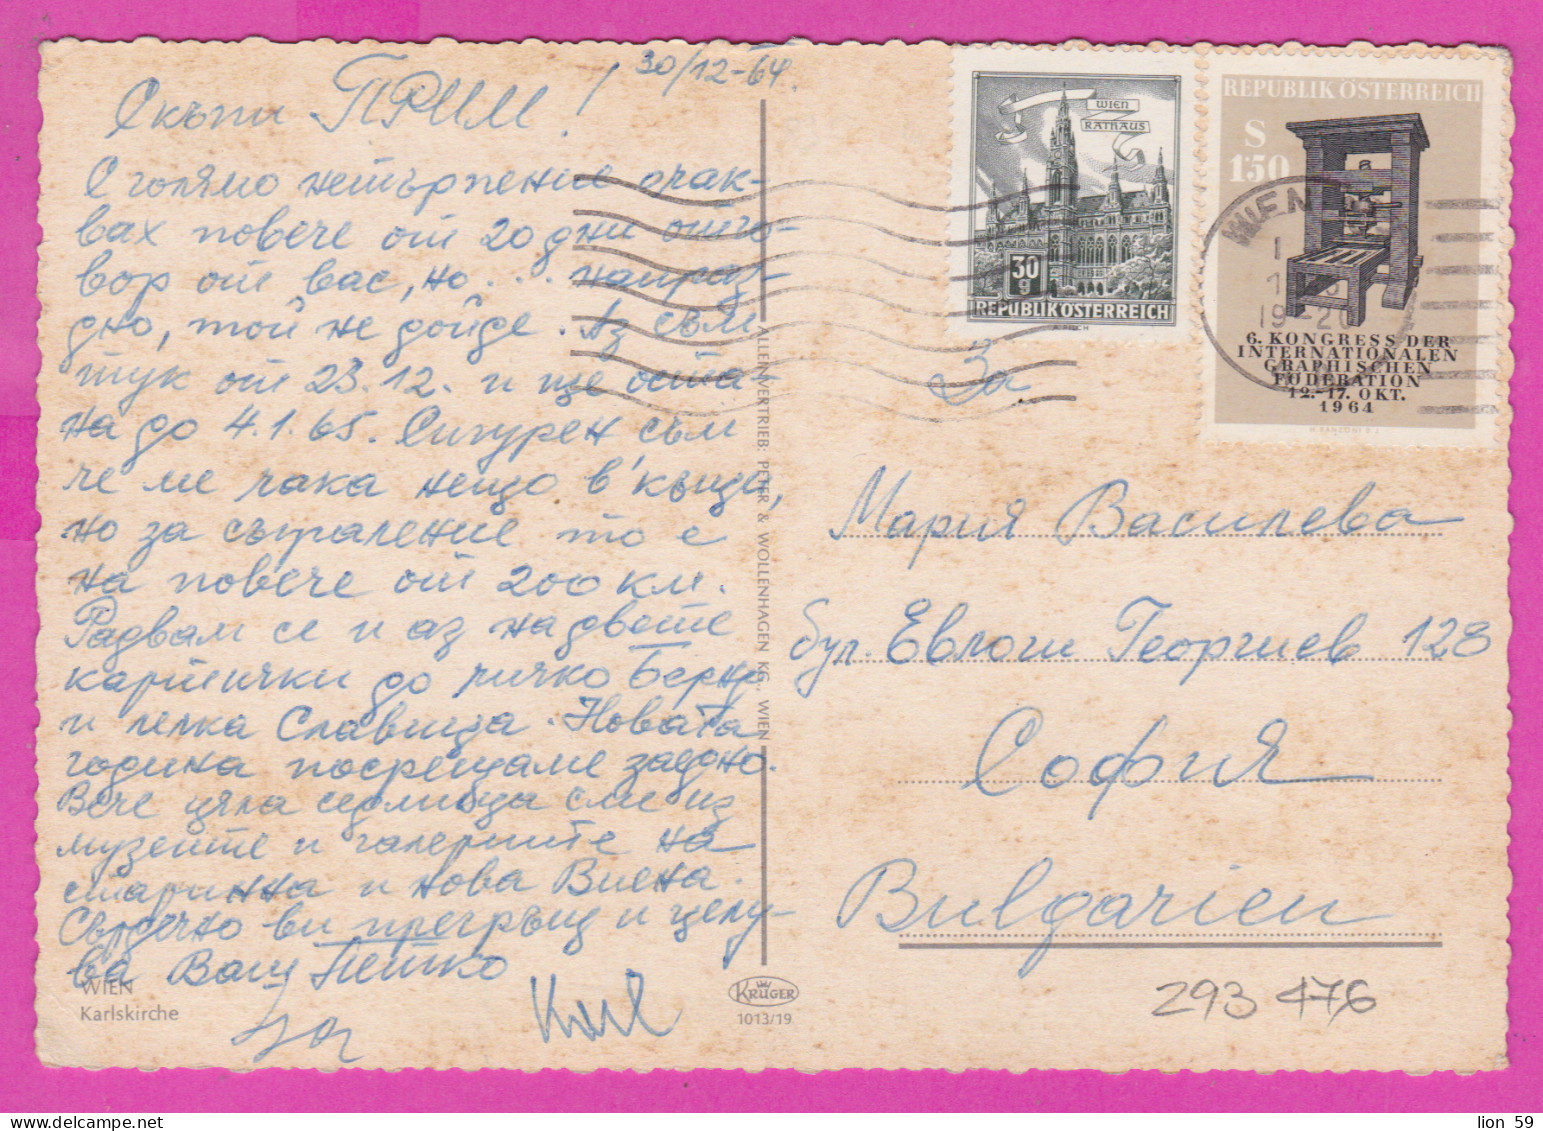 30/12-64.
Скъпи ПРИМ!
С голямо нетърпение очак-
вах повече от 20 дни отго-
вор от вас, но... напраз-
дно, той не дойде. Аз съм
тук от 23.12. и ще оста-
на до 4.1.65. Сигурен съм
че ме чака нещо в'къщи,
но за съжаление то е
на повече от 200 км.
Радвам се и аз на двете
картички до чичко Бернр
и лелка Славица. Новата
година посрещаме заедно.
Вече цяла седмица сме из
музеите и галериите на
старинна и нова Виена.
Сърдечно ви прегръщ и целу-
ва Ваш Петко
Karl
WIEN
Karlskirche
ALLEINVERTRIEB: PETER & WOLLENHAGEN KG., WIEN
KRÜGER
1013/19
WIEN
RATHAUS
30
g
REPUBLIK ÖSTERREICH
REPUBLIK ÖSTERREICH
S
1·50
WIEN
19-20
6. KONGRESS DER
INTERNATIONALEN
GRAPHISCHEN
FÖDERATION
12.-17. OKT.
1964
За
Мария Василева
бул. Евлоги Георгиев 128
София
Bulgarien
293 476
lion 59